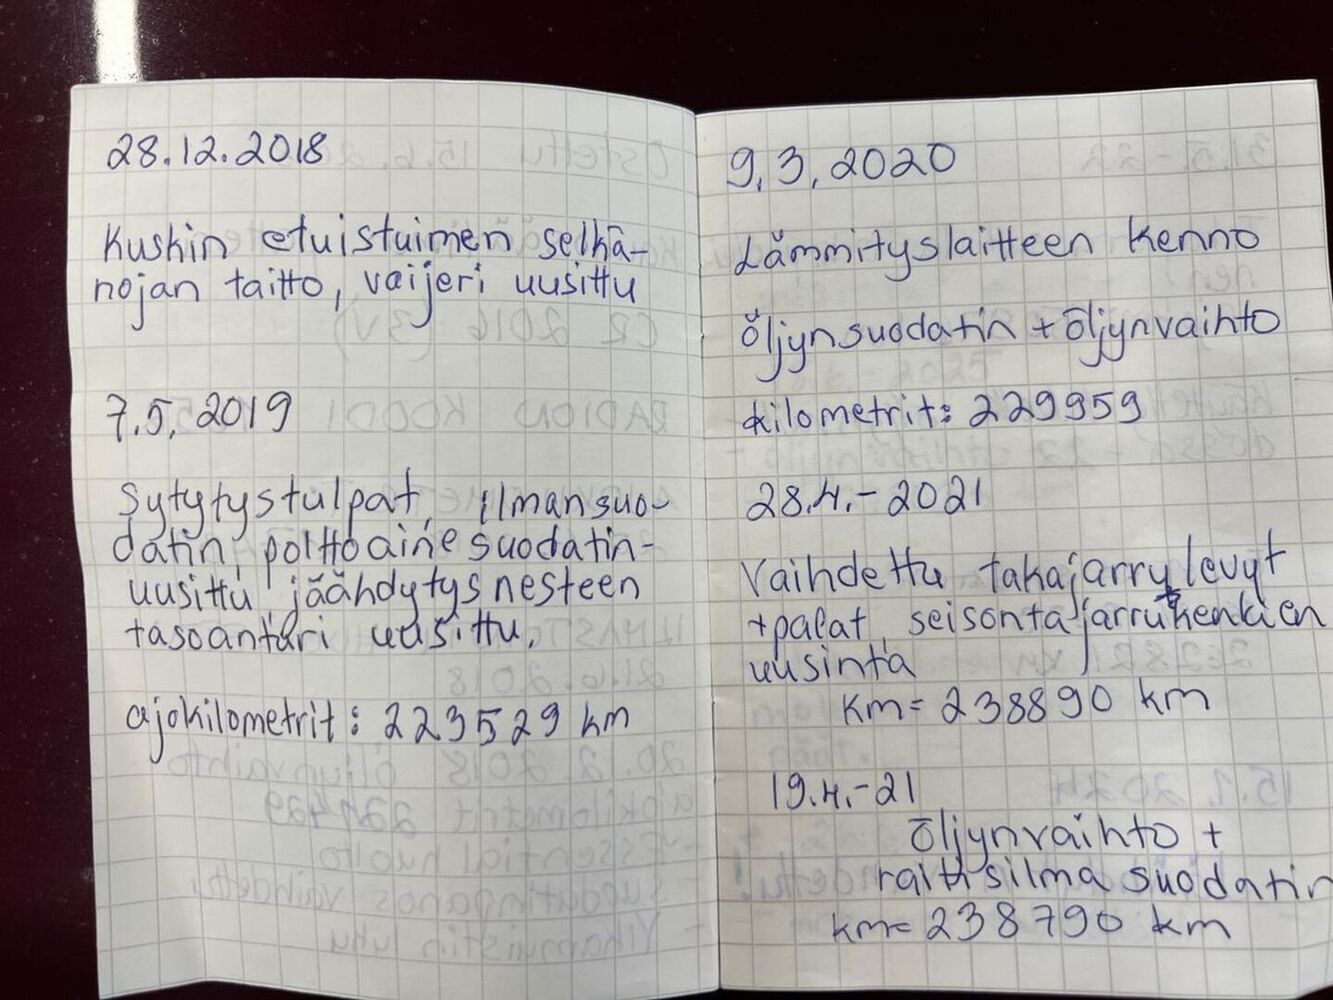 28.12.2018
Kuskin etuistuimen selkä-
nojan taitto, vaijeri uusittu
7.5.2019
Sytytystulpat, ilmansuo-
datin, polttoainesuodatin-
uusittu, jäähdytysnesteen
tasoanturi uusittu.
ajokilometrit: 223529 km
9.3.2020
Lämmityslaitteen kenno
Öljynsuodatin + öljynvaihto
kilometrit: 229959
28.4.-2021
Vaihdettu takajarrulevyt
+palat, seisontajarrukenkien
uusinta
Km= 238890 km
19.4.-21
Öljynvaihto +
raitisilma suodatin
km= 238790 km